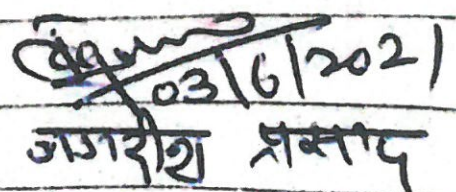 03/6/2021
जगदीश प्रसाद